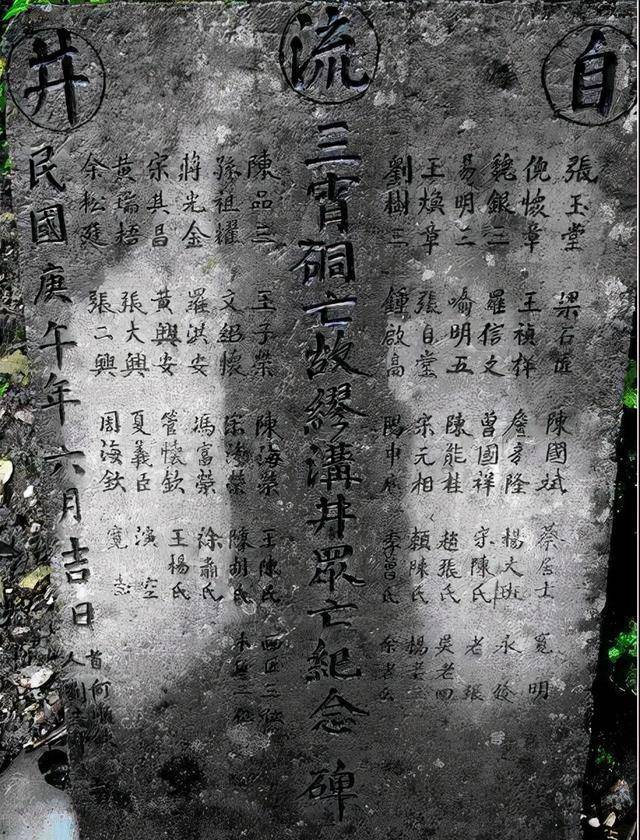 自流井
張玉堂 梁石匠 陳國斌 蔡居士 寬明
倪懷章 王禎祥 隆 楊大 永
魏銀二 羅信文 曾國祥 宋陳氏 老張
易明二 喻明五 陳能桂 趙張氏 吳老四
王煥章 張自堂 宋元相 賴陳氏 楊老
劉樹三 鍾啟高 李曾氏 余老
三霄硐亡故繆溝井眾亡紀念碑
陳品三 王子榮 陳海榮 王陳氏 三位
孫祖耀 文紹懷 宋海榮 陳胡氏
蔣光金 羅洪安 馮富榮 徐肅氏
宋其昌 黃興安 管懷欽 王楊氏
黃瑞梧 張大興 夏義臣 演空
余松廷 張二興 周海欽 寬
民國庚午年六月吉日
首人 何 劉